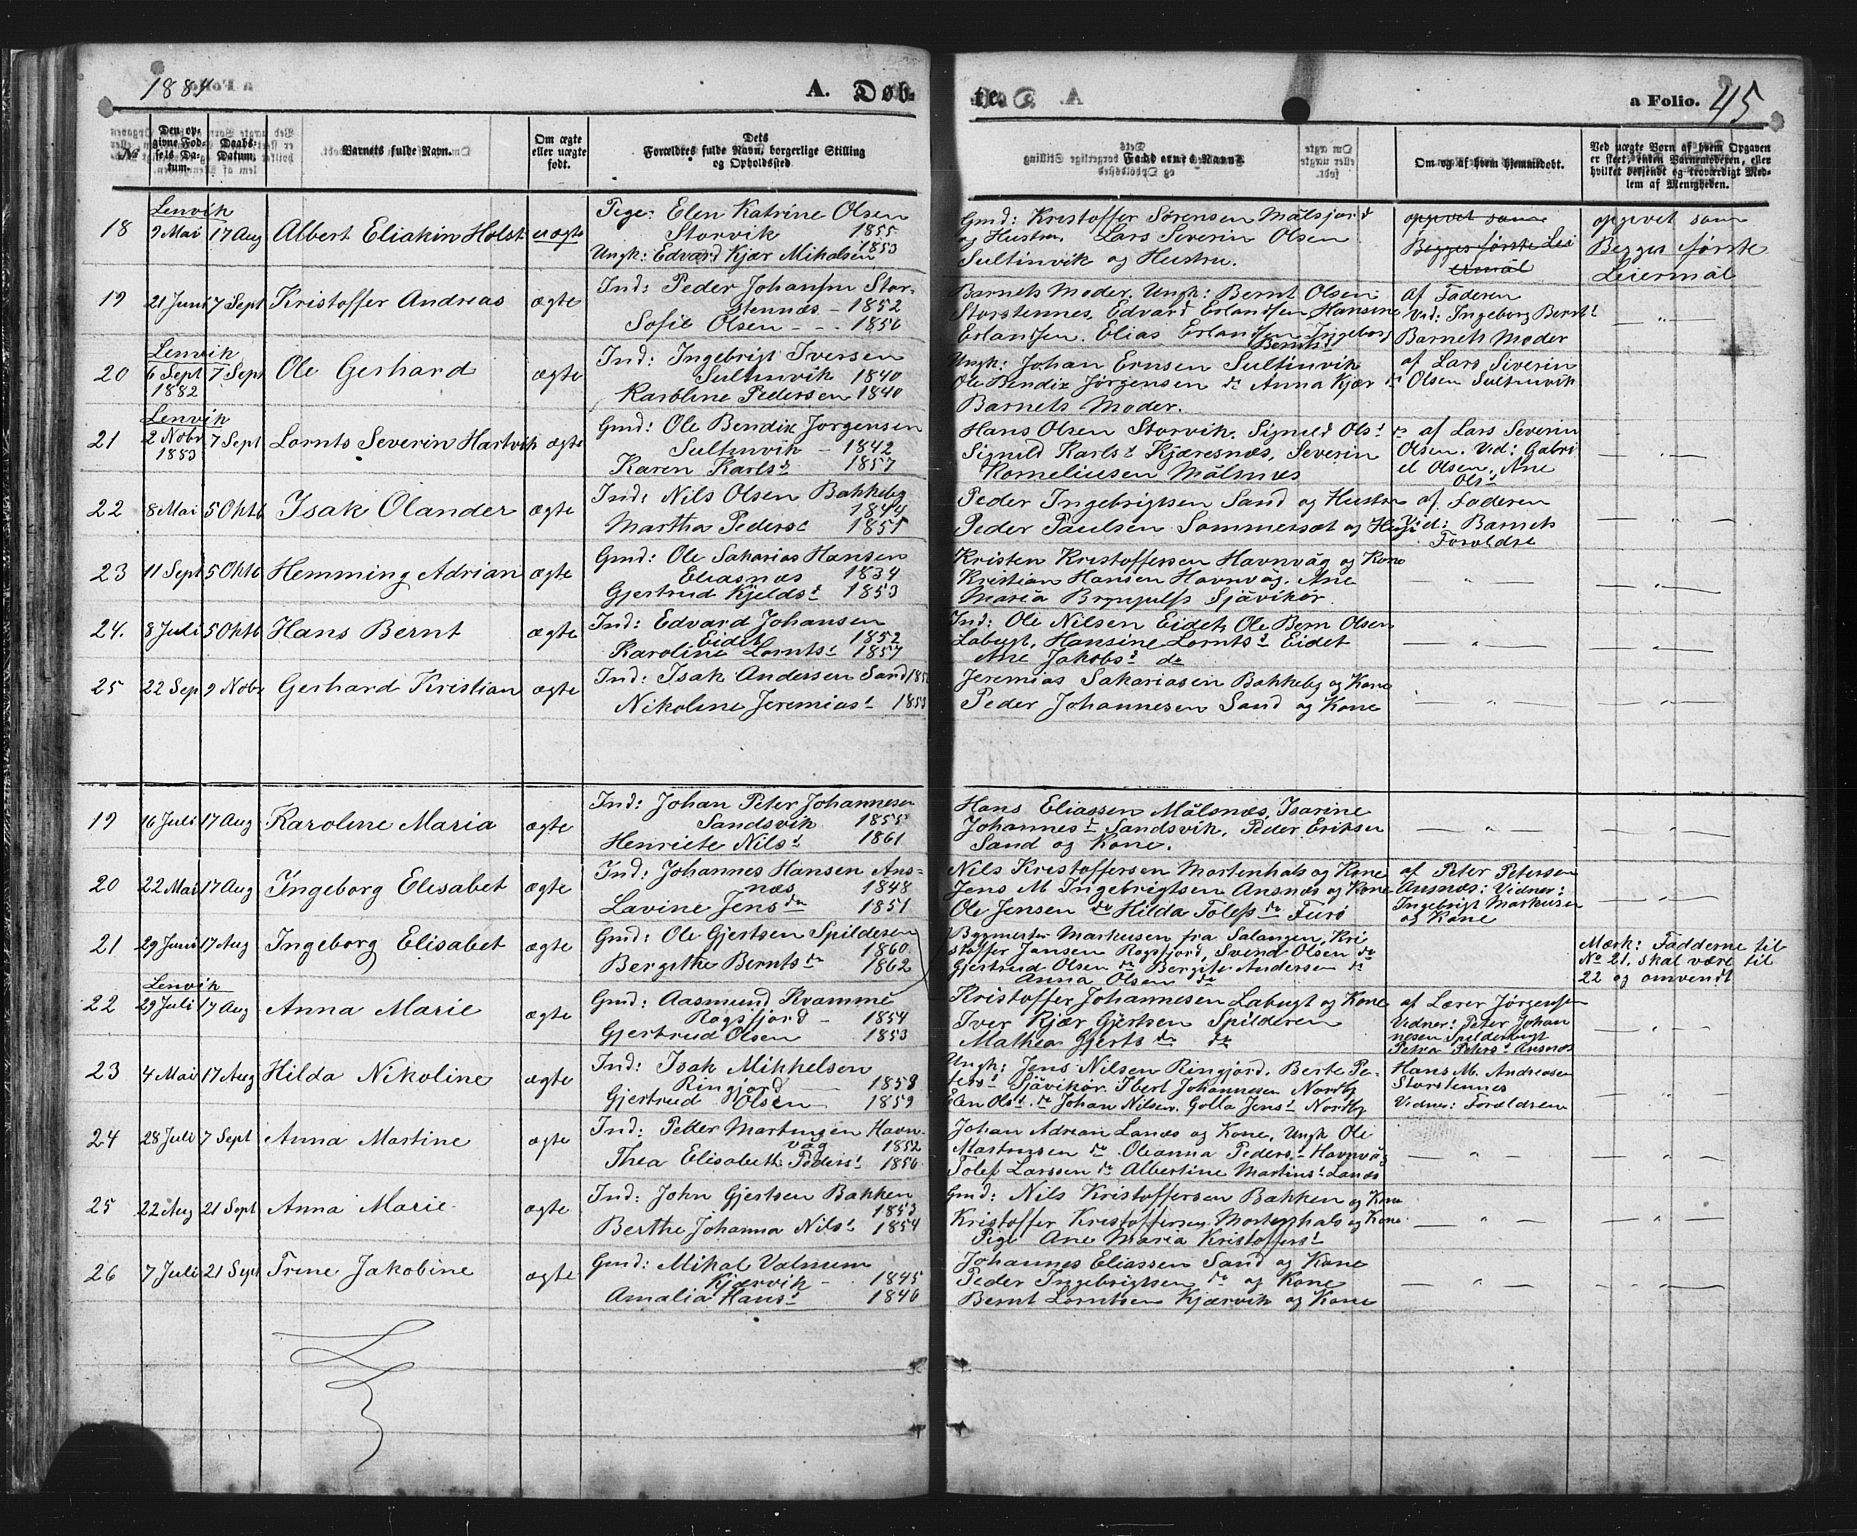 1884
A. Døb-
te.
a Folio. 45
No
Den op-
givne Fød-
sels Da-
tum.
Daabs-
Datum.
Barnets fulde Navn.
Om ægte
eller uægte
født.
Dets
Forældres fulde Navn, borgerlige Stilling
og Opholdssted.
Faddernes Navne.
Om og af hvem hjemmedøbt.
Ved uægte Børn af hvem Opgaven
er skeet, enten Barnemoderen, eller
hvilket bekjendt og troværdigt Med-
lem af Menigheden.
18
Lenvik
9 Mai
17 Aug
Albert Eliakin Holst
uægte
Pige: Elen Katrine Olsen
Storvik 1855
Ungk: Edvard Kjær Mikalsen 1853
Gmd: Kristoffer Sørensen Målsjord
og Hustru Lars Severin Olsen
Sultinvik og Hustru.
opgivet som
Begges første Lei
ermål
opgivet som
Begges første
Leiermål
19
21 Juni
7 Sept
Kristoffer Andreas
ægte
Ind: Peder Johansen Stor-
stennes - 1852
Sofie Olsen - - 1856
Barnets Moder. Ungk: Bernt Olsen
Storstennes, Edvard Erlandsen Hansine
Erlandsen. Elias Erlandsen Ingeborg
Bernts:
af Faderen
Vid: Ingeborg Bernts
Barnets Moder
20
Lenvik
6 Sept
1882
7 Sept
Ole Gerhard
ægte
Ind: Ingebrigt Iversen
Sultinvik 1840
Karoline Pedersen 1840
Ungk: Johan Ernsen Sultinvik
Ole Bendix Jørgensen do Anna Kjær do
Barnets Moder.
af Lars Severin
Olsen Sultinvik
21
Lenvik
2 Nobr
1883
7 Sept
Lornts Severin Hartvik
ægte
Gmd: Ole Bendix Jørgensen
Sultinvik - 1842
Karen Karls: 1857
Hans Olsen Storvik. Signeld Ols: do
Signeld Karls: Kjæresnæs, Severin
Korneliussen Målsnæs
af Lars Severin
Olsen. Vid: Gabri
el Olsen, Ane
Ols:
22
8 Mai
5 Oktb
Isak Olander
ægte
Ind: Nils Olsen Bakkeby
1844
Martha Peders: 1851
Peder Ingebrigtsen Sand og Hustru
Peder Paulsen Sommersæt og
af Faderen
Vid: Barnets
Foreldre
23
11 Sept
5 Oktb
Hemming Adrian
ægte
Gmd: Ole Sakarias Hansen
Eliasnæs 1834
Gjertrud Kjelds: 1853
Kristen Kristoffersen Havnvåg og Kone
Kristian Hansen Havnvåg. Ane
Maria Brynjulfs Sjåvikor.
24.
8 Juli
5 Oktb
Hans Bernt
ægte
Ind: Edvard Johansen
Eidet 1852
Karoline Lornts: 1857
Ind: Ole Nilsen Eidet, Ole Bern Olsen
Labugt, Hansine Lornts: Eidet
Ane Jakobs: do
25
22 Sep
9 Nobr
Gerhard Kristian
ægte
Ind: Isak Andersen Sand
Nikoline Jeremias: 1853
Jeremias Sakariasen Bakkeby og Kone
Peder Johannesen Sand og Kone
19
16 Juli
17 Aug
Karoline Maria
ægte
Ind: Johan Peter Johannesen
Sandsvik 1855
Henriete Nils: 1861
Hans Eliassen Målsnæs, Isarine
Johannes: Sandsvik, Peder Eriksen
Sand og Kone.
20
22 Mai
17 Aug
Ingeborg Elisabet
ægte
Ind: Johannes Hansen Ans-
næs 1848
Lavine Jens do 1851
Nils Kristoffersen Mortenhals og Kone
Jens M Ingebrigtsen Ansnæs og Kone
Ole Jensen do Hilda Tolefs do Furø
af Peter Petersen
Ansnæs: Vidner:
Ingebrigt Markusen
og Kone
21
29 Juni
17 Aug
Ingeborg Elisabet
ægte
Gmd: Ole Gjertsen Spilderen
1860
Bergithe Bernts do 1862
Bygmester Markusen fra Salangen, Kri
stoffer Jansen Rogsfjord, Svend Olsen do
Gjertrud Olsen do Bergite Andersen do
Anna Olsen do
Mærk: Fadderne til
No 21. skal være til
22 og omvendt
22
Lenvik
29 Juli
17 Aug
Anna Marie
ægte
Gmd: Aasmund Kvamme
Rogsfjord - 1854
Gjertrud Olsen 1853
Kristoffer Johannesen Labugt og Kone
Iver Kjær Gjertsen Spilderen
Mathea Gjerts do do
af Lærer Jørgensen
Vidner: Peter Johan
nesen Spilderbugt
Petra Peters: Ansnæs
23
4 Mai
17 Aug
Hilda Nikoline
ægte
Ind: Isak Mikkelsen
Ringjord 1858
Gjertrud Olsen 1859
Ungk: Jens Nilsen Ringjord. Berte Pe-
ters: Sjåvikor. Ibert Johannesen Nordby
Elen Ols: do Johan Nilsen, Golla Jens: Nordby
Hans M. Andreasen
Storstennes
Vidner: Foreldrene
24
28 Juli
7 Sept
Anna Martine
ægte
Ind: Petter Martinsen Havn-
våg 1852
Thea Elisabeth Peders: 1856
Johan Adrian Lanæs og Kone, Ungk Ole
Martinsen do Oleanna Peders: Havnvåg
Tolef Larssen do Albertine Martins: Lanæs
25
22 Aug
21 Sept
Anna Marie
ægte
Ind: John Gjertsen Bakken
1853
Berthe Johanna Nils: 1854
Gmd: Nils Kristoffersen Bakken og Kone
Kristoffer Kristoffersen Mortenhals og Kone
Pige Ane Maria Kristoffers:
26
7 Juli
21 Sept
Trine Jakobine
ægte
Gmd: Mikal Valnum
Kjærvik - 1845
Amalia Hans: 1846
Johannes Eliassen Sand og Kone
Peder Ingebrigtsen do og Kone
Bernt Lorntsen Kjærvik og Kone